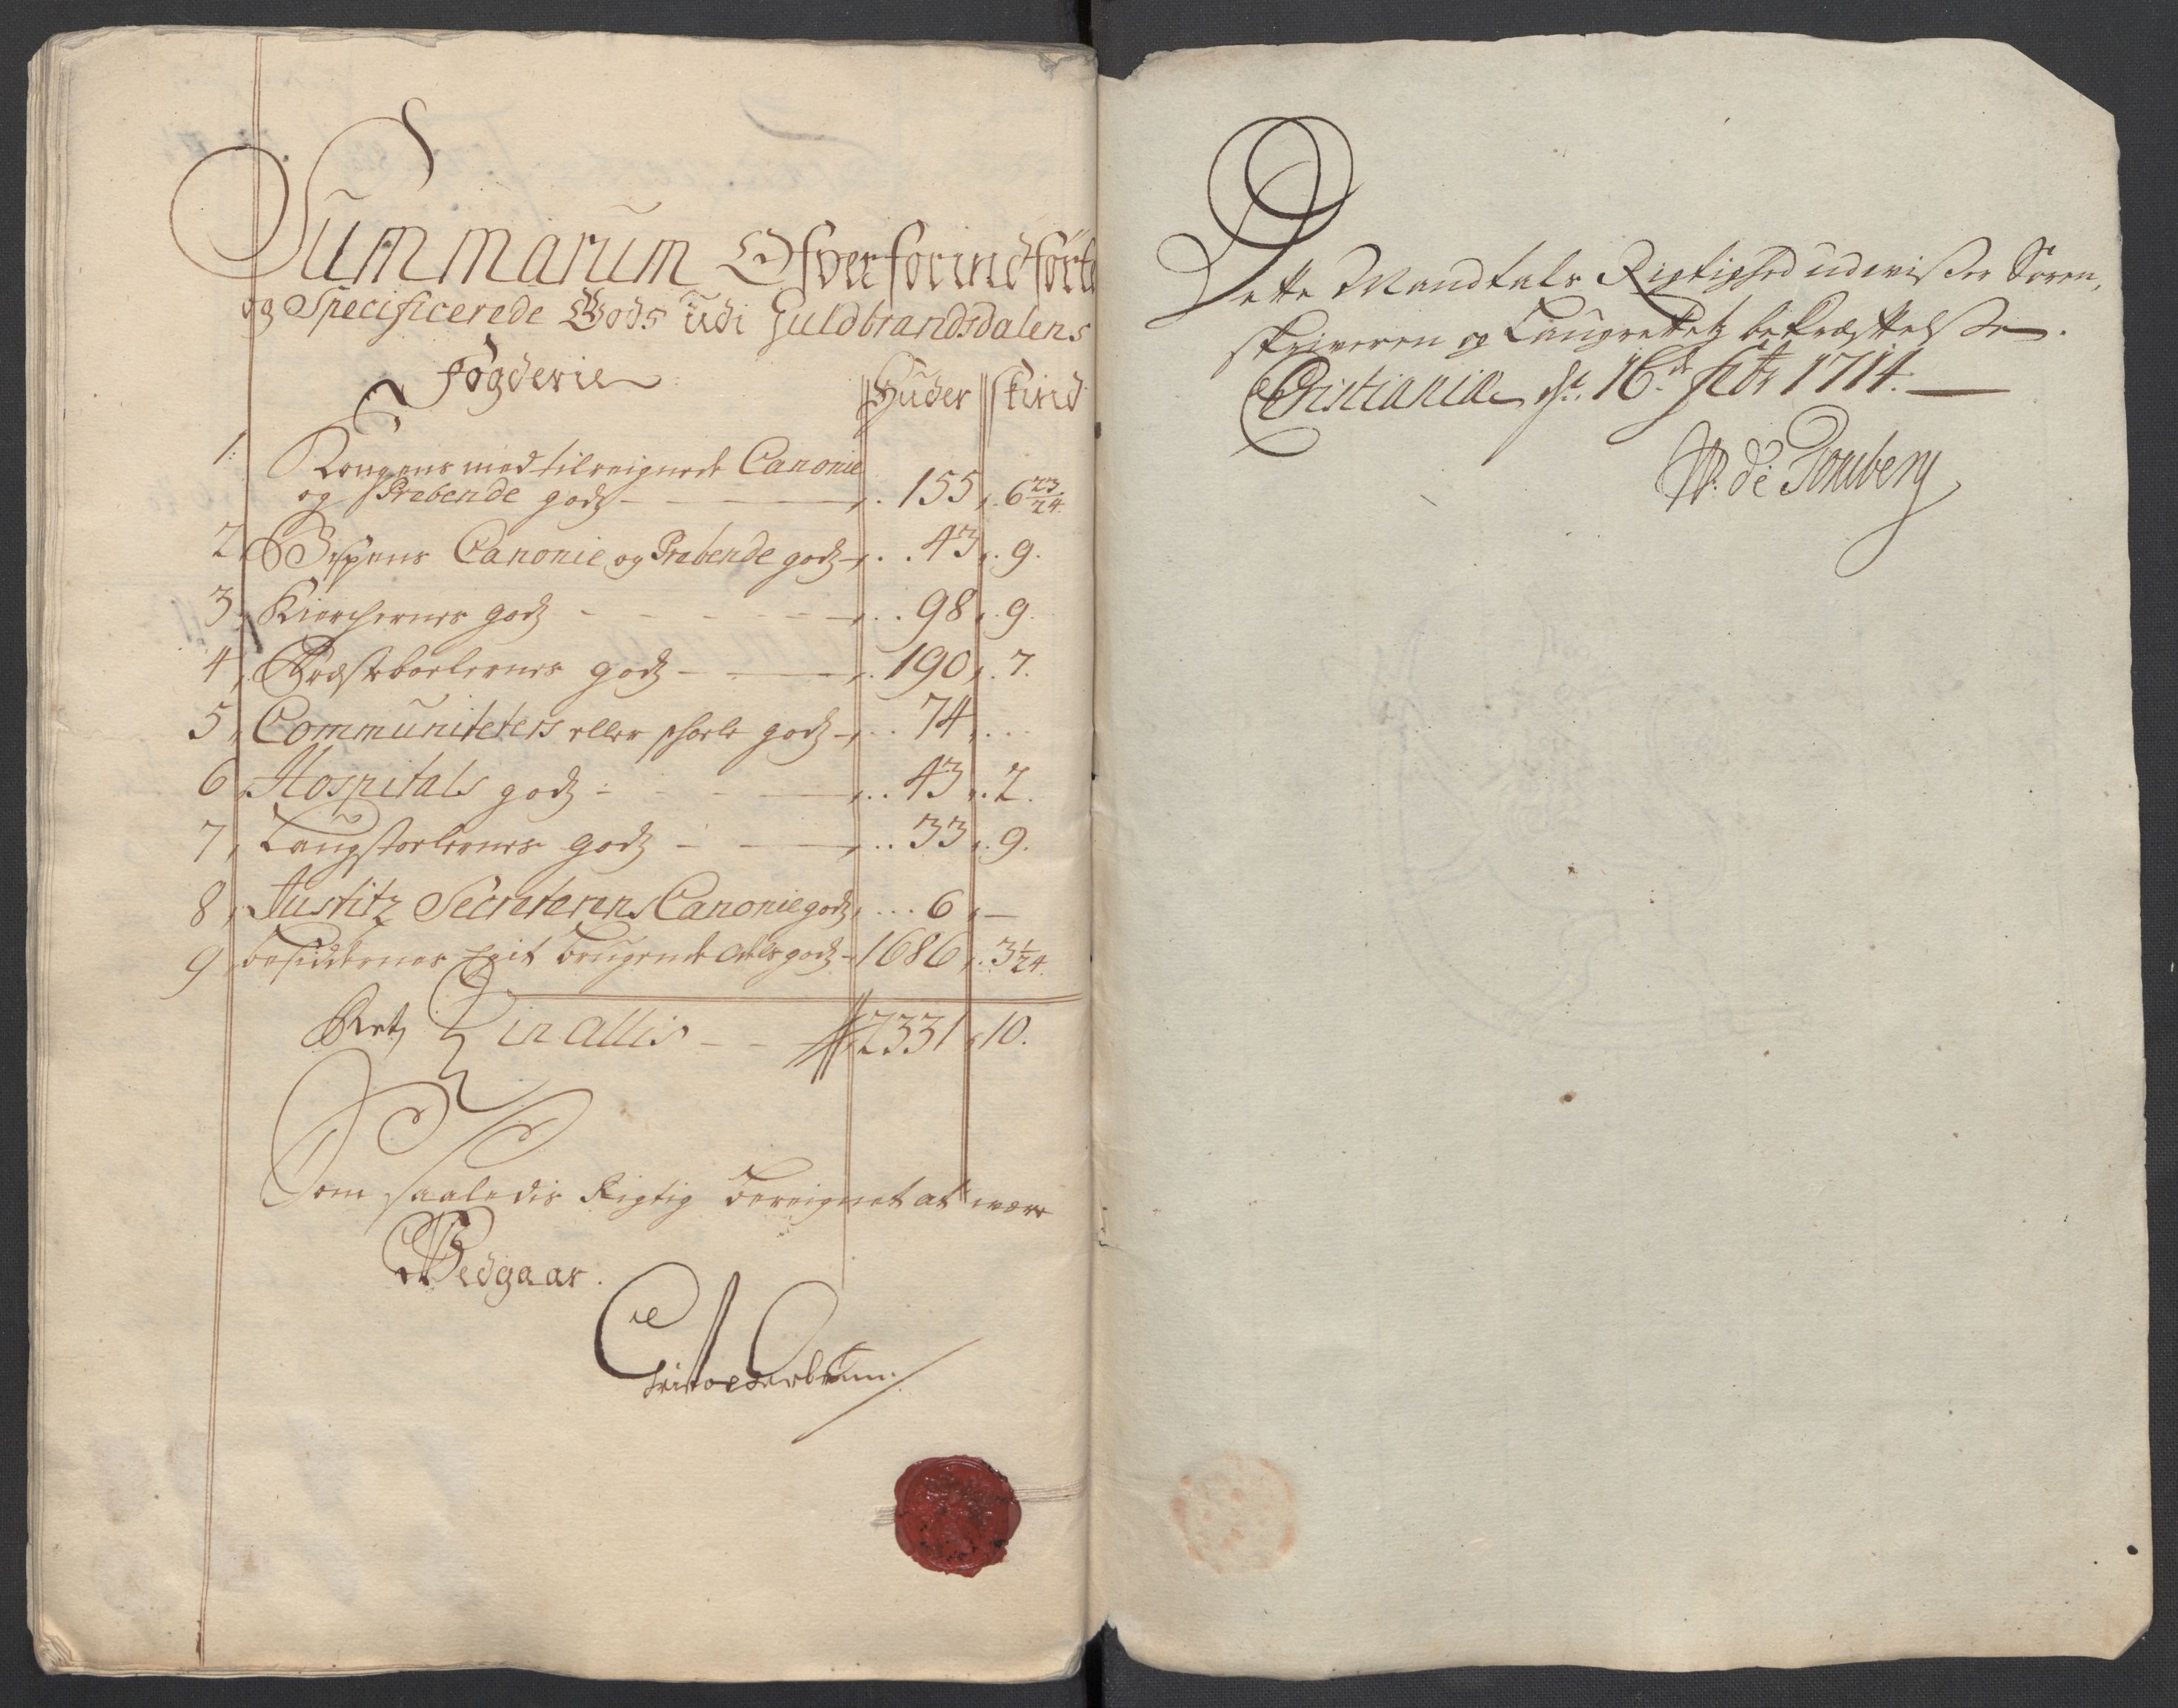 Summarum Ofver forindførte
og Specificerede Gods udi Guldbrandsdalens
Fogderie
Huder Skind
1. Kongens med tilreignede Canonie
og Præbende godz 155 . 6 23/24
2 Bispens Canonie og Præbende godz 43 . 9.
3 Kierchernes godz 98 . 9.
4 Præsteboelernes godz 190 . 7.
5 Communitetets eller schoele godz 74 . . .
6 Hospitals godz 43 . 2.
7 Laugstoelernes godz 33 . 9.
8 Justitz Secreterens Canonie godz 6 —
9 besiddernes Egit brugende odels godz 1686 . 3 1/24.
in allis 2331 . 10.
Som saaledis Rigtig bereignet at være
Vedgaar.
Dette Mandtals Rigtighed udvisser Soren,
skriveren og Laugrettetz bekræfftelsse.
Christiania d. 16 febr 1714.